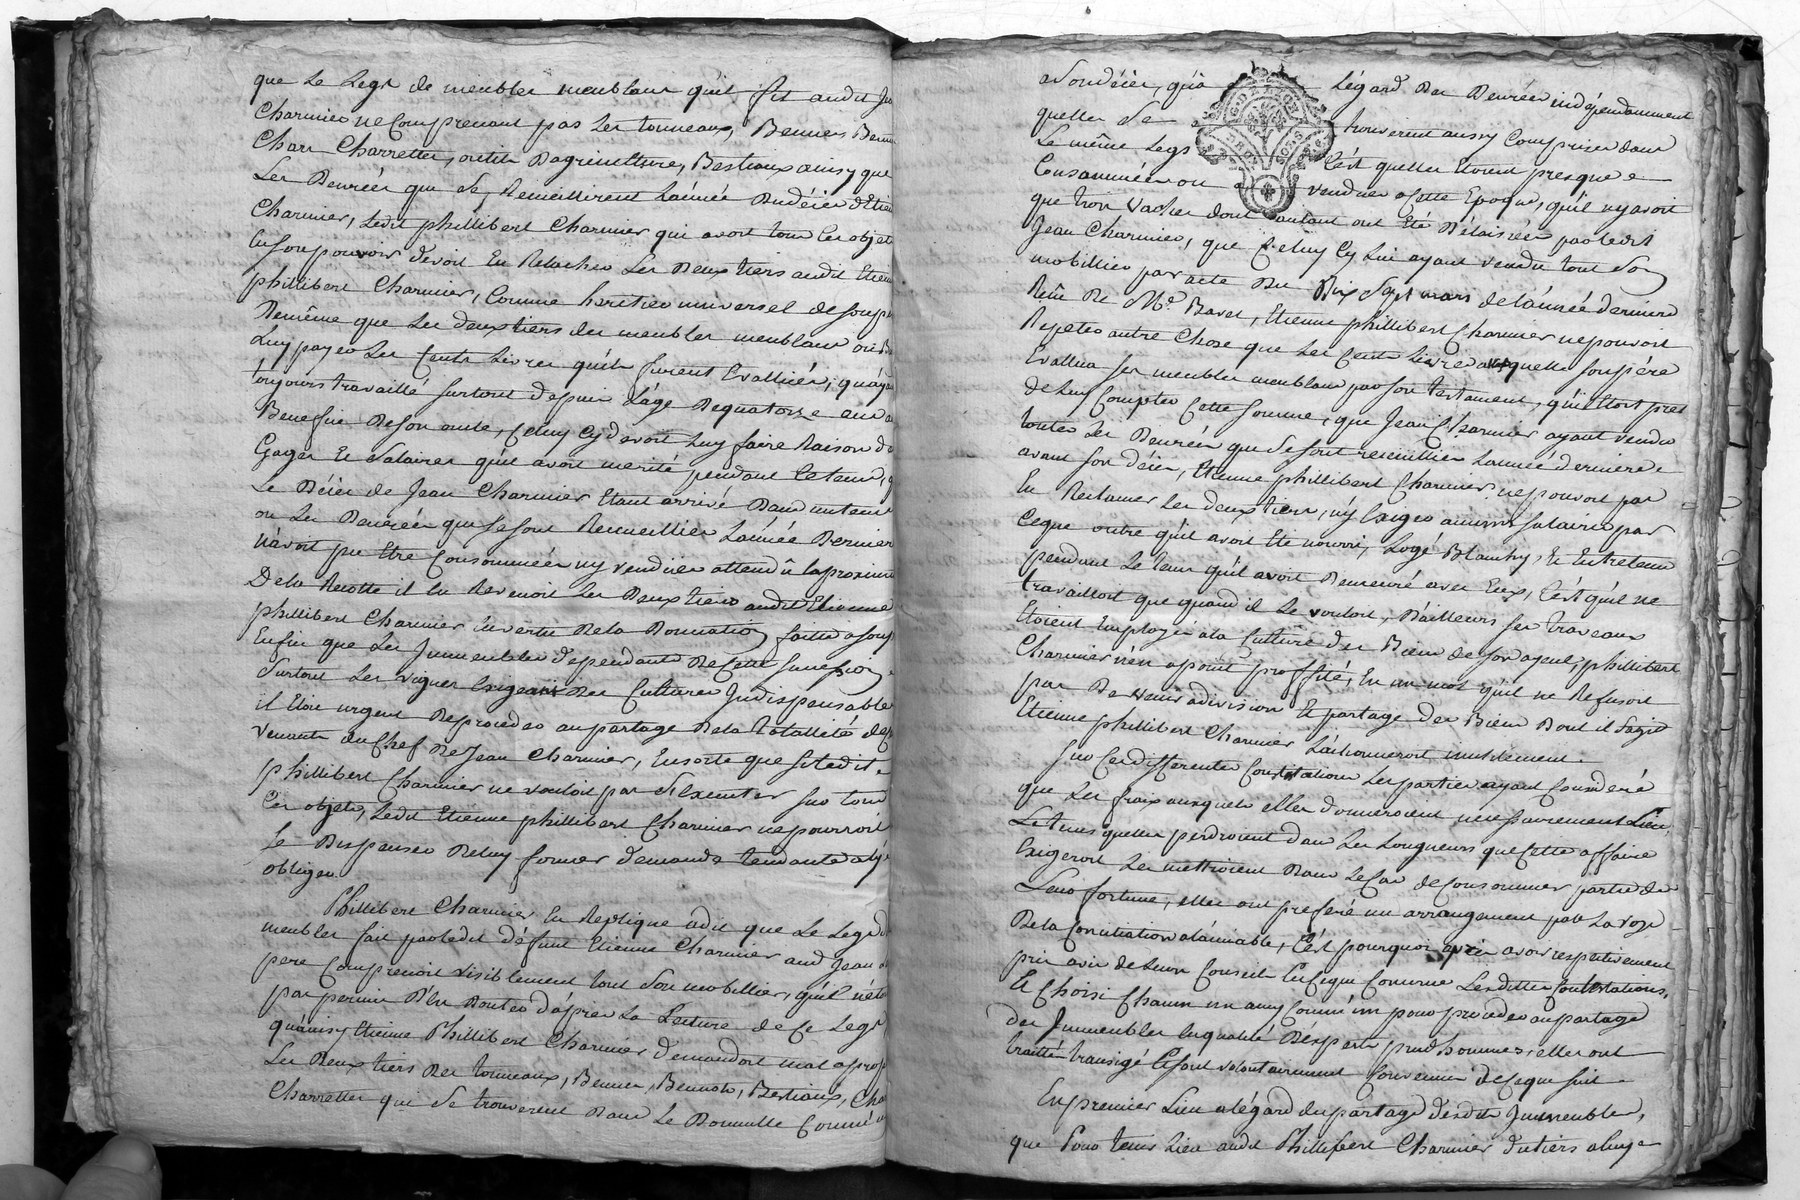 que Le Legs de meubles meublans quil fit audit Je
Charmier ne Comprenant pas Les tonneaux, Bennes Benn
Chars Charrettes, outils Dagriculture, Bestiaux ainsy que
Les Denrées que Se Receuillirent Lannée Dudécès dEtien
Charmier, Ledit phillibert Charmier qui avoit tous Ces objets
En son pouvoir devoit En Relacher Les Deux tiers audit Etienne
phillibert Charmier, Comme heritier universel de son p
Demême que Les deux tiers des meubles meublans ou B
Luy payer Les Cents Livres quils furent Evallués, quaya
toujours travaillé surtout depuis Lâge Dequatorze ans a
Benefice De son oncle, Celuy Cy devoit Luy faire Raison d
Gages Et Salaires quil avoit merité pendant Cetems, q
Le Décès de Jean Charmier Etant arrivé Dans un tems
ou Les Denrées que Se sont Recueillies Lannée Dernier
navoit pu Etre Consommées ny vendues attendû la proximi
Dela Recolte il En Revenoit Les Deux tiers audit Etienne
phillibert Charmier En vertu Dela Donnation faitte a son p
Enfin que Les Immeubles dependants De Cette Succession
Surtout Les vignes Exigeant Des Cultures Indispensables
il Etoit urgent Deproceder au partage Dela totallité de
venants du Chef De Jean Charmier, Ensorte que si Ledit
phillibert Charmier ne vouloit pas Sexecuter sur tous
Ces objets, Ledit Etienne phillibert Charmier ne pourroit
Se Dispenser De luy former demande tendante a ly
obliger.
Phillibert Charmier En Replique a dit que Le Legs d
meubles fait par ledit défunt Etienne Charmier aud Jean
pere Comprenoit visiblement tout Son mobillier, quil net
pas permis D'En Douter d'après La Lecture de Ce Legs
quainsy Etienne Phillibert Charmier demandoit mal a prop
Les Deux tiers Des tonneaux, Bennes, Bennots, Bestiaux, Cha
Charrettes que Se trouverent Dans Le Domicille Comme
a Sondécès, qua Légard Des Denrées indépendamment
quelles Se trouverent aussy Comprises dans
Le même Legs C'est quelles Etoient presque
Consommées ou vendues a Cette Epoque, quil ny avoit
que trois vaches dont autant ont Eté Délaissées par ledit
Jean Charmier, que Celuy Cy Lui ayant vendu tout Son
mobillier par acte Du Dix Sept mars de l'année derniere
Reçu De Me. Bavet, Etienne phillibert Charmier ne pouvoit
Repeter autre Chose que Les Cents Livres auxquelles son père
Evallua ses meubles meublans par son testament, quil Etoit pret
de Luy Compter Cette somme, que Jean Charmier ayant vendu
toutes Les Denrées que Se sont receuillies Lannée derniere
avant son décès, Etienne phillibert Charmier ne pouvoit pas
En Reclamer Les deux tiers, ny Exiger aucuns salaires par
Ceque outre quil avoit Eté nourri, Logé Blanchy, Et Entretenu
pendant Le tems quil avoit Demeuré avec Eux, C'est quil ne
travailloit que quand il Le vouloit, Dailleurs ses travaux
Etoient Employés ala Culture des Biens de son ayeul, phillibert
Charmier n'en a point proffité, En un mot quil ne Refusoit
pas De venir a division Et partage Des Biens Dont il Sagit
Etienne phillibert Charmier L'actionneroit inutilement.
Sur Ces differentes Contestations Les parties ayant Consideré
que Les fraix auxquels elles donneroient necessairement Lieu,
Le tems quelles perdroient dans Les Longueurs que Cette affaire
Exigeroit Les mettroient Dans Le Cas de Consommer partie de
Leur fortune, elles ont preferé un arrangement par La voye
De la Conciliation a lamiable, C'est pourquoi après avoir respectivement
pris avis de Leurs Conseils En Ceque Concerne Lesdittes Contestations,
Et Choisi Chacun un amy Commun pour proceder au partage
des Immeubles En qualité D'Experts prud'hommes, elles ont
traitté transigé Et sont volontairement Convenues de Ceque Suit
En premier Lieu a légard du partage desdits Immeubles,
que pour tenir Lieu audit Phillibert Charmier du tiers a luy